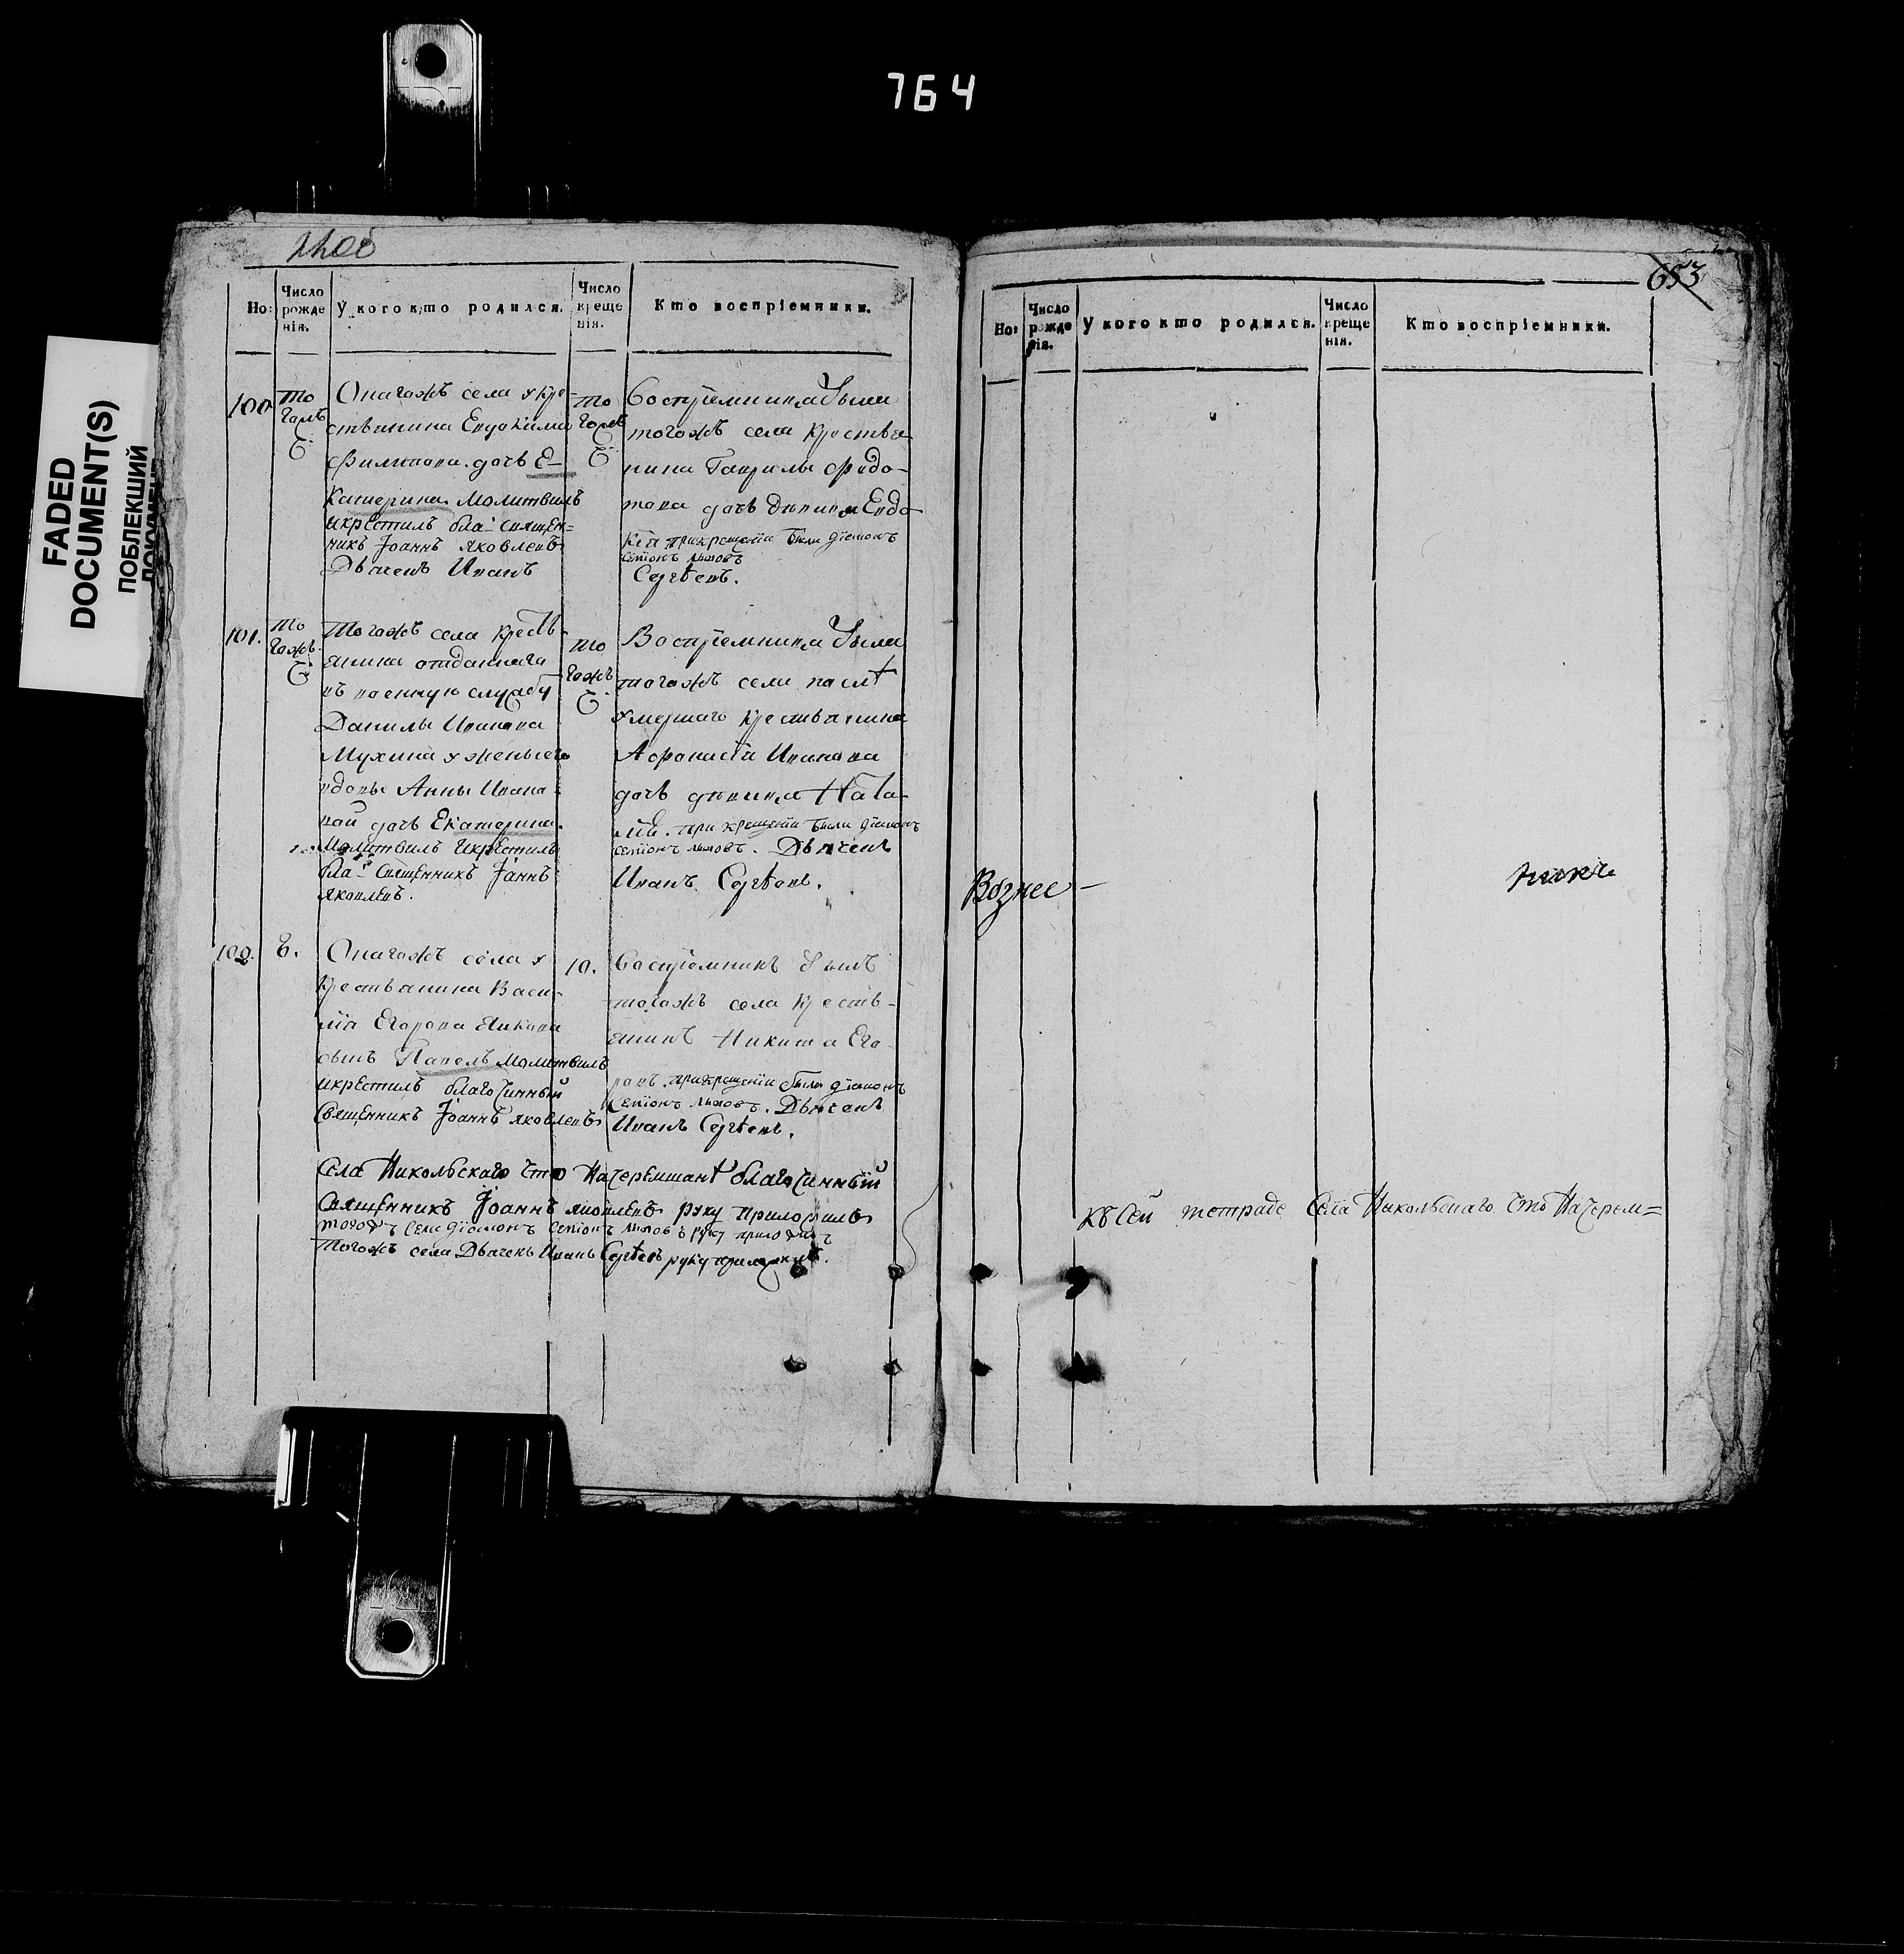 764
FADED
DOCUMENT(S)
ПОБЛЕКШИЙ
ДОКУМЕНТ
Но:
Число рожденія.
У кого кто родился.
Число крещенія.
Кто воспріемники.
100.
то
гожъ
Онагожъ села у кре-
стьянина Евдокима
Филипова дочь Е-
катерина молитвилъ
икрестилъ бла: священ=
никъ Іоаннъ Яковлевъ
Дьячекъ Иванъ
то
гожъ
Воспріемница была
тогожъ села крестья-
нина Гаврилы Федо-
това дочь девица Евдо-
кія прикрещеніи были діаконъ
Сергѣевъ.
101.
то
гожъ
Тогожъ села крестъ-
янина отданнаго
въ военную службу
Данилы Иванова
Мухина у жены его
вдовы Анны Ивано-
вой дочь Екатерина.
Молитвилъ икрестилъ
бла: Священникъ Іоаннъ
Яковлевъ.
то
гожъ
Воспріемница была
тогожъ села послѣ
умершаго крестьянина
Афонасія Иванова
дочь девица Ната-
лія. при крещеніи были діаконъ
Дьячекъ
Иванъ Сергѣевъ.
102.
Онагожъ села у
крестьянина Васи-
лія Егорова
сынъ Павелъ молитвилъ
икрестилъ благочинный
Священникъ Іоаннъ Яковлевъ
10.
Воспріемникъ былъ
тогожъ села кресть-
янинъ Никита Его-
ровъ. прикрещеніи были діаконъ
Дьячекъ
Иванъ Сергѣевъ.
Села Никольскаго что НаЧеремшанѣ благочинный
Священникъ Іоаннъ Яковлевъ руку приложилъ
тогожъ села діаконъ руку приложилъ
Тогожъ села Дьячекъ Иванъ Сергѣевъ руку приложилъ.
653
Но:
Число рожденія.
У кого кто родился.
Число крещенія.
Кто воспріемники.
Вознес-
къ сей тетраде Села Никольскаго что НаЧерем=